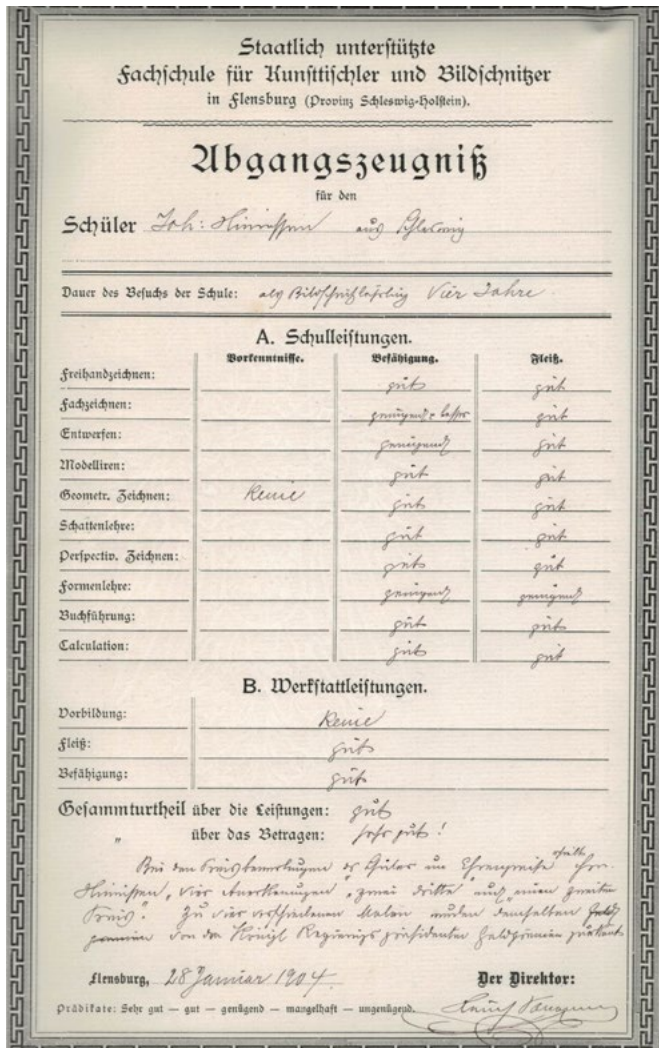 Staatlich unterstützte
Fachschule für Kunsttischler und Bildschnitzer
in Flensburg (Provinz Schleswig-Holstein).
Abgangszeugniß
für den
Schüler Joh: Hinrichsen aus Schleswig
Dauer des Besuchs der Schule: als Bildschnitzlehrling Vier Jahre
A. Schulleistungen.
Vorkenntnisse. Befähigung. Fleiß.
Freihandzeichnen: gut gut
Fachzeichnen: genügend besser gut
Entwerfen: genügend gut
Modelliren: gut gut
Geometr. Zeichnen: Keine gut gut
Schattenlehre: gut gut
Perspectiv. Zeichnen: gut gut
Formenlehre: genügend genügend
Buchführung: gut gut
Calculation: gut gut
B. Werkstattleistungen.
Vorbildung: Keine
Fleiß: gut
Befähigung: gut
Gesammturtheil über die Leistungen: gut
" über das Betragen: sehr gut!
Bei den Preisbewerbungen der Schüler um Ehrenpreise erhielt
Hinrichsen "vier Anerkennungen" "zwei dritte" und "einen zweiten
Preis". Zu vier verschiedenen Malen wurden demselben
von dem Königl Regierungspräsidenten Geldprämien zuerkannt
Flensburg, 28 Januar 1904. Der Direktor:
Prädikate: Sehr gut — gut — genügend — mangelhaft — ungenügend.